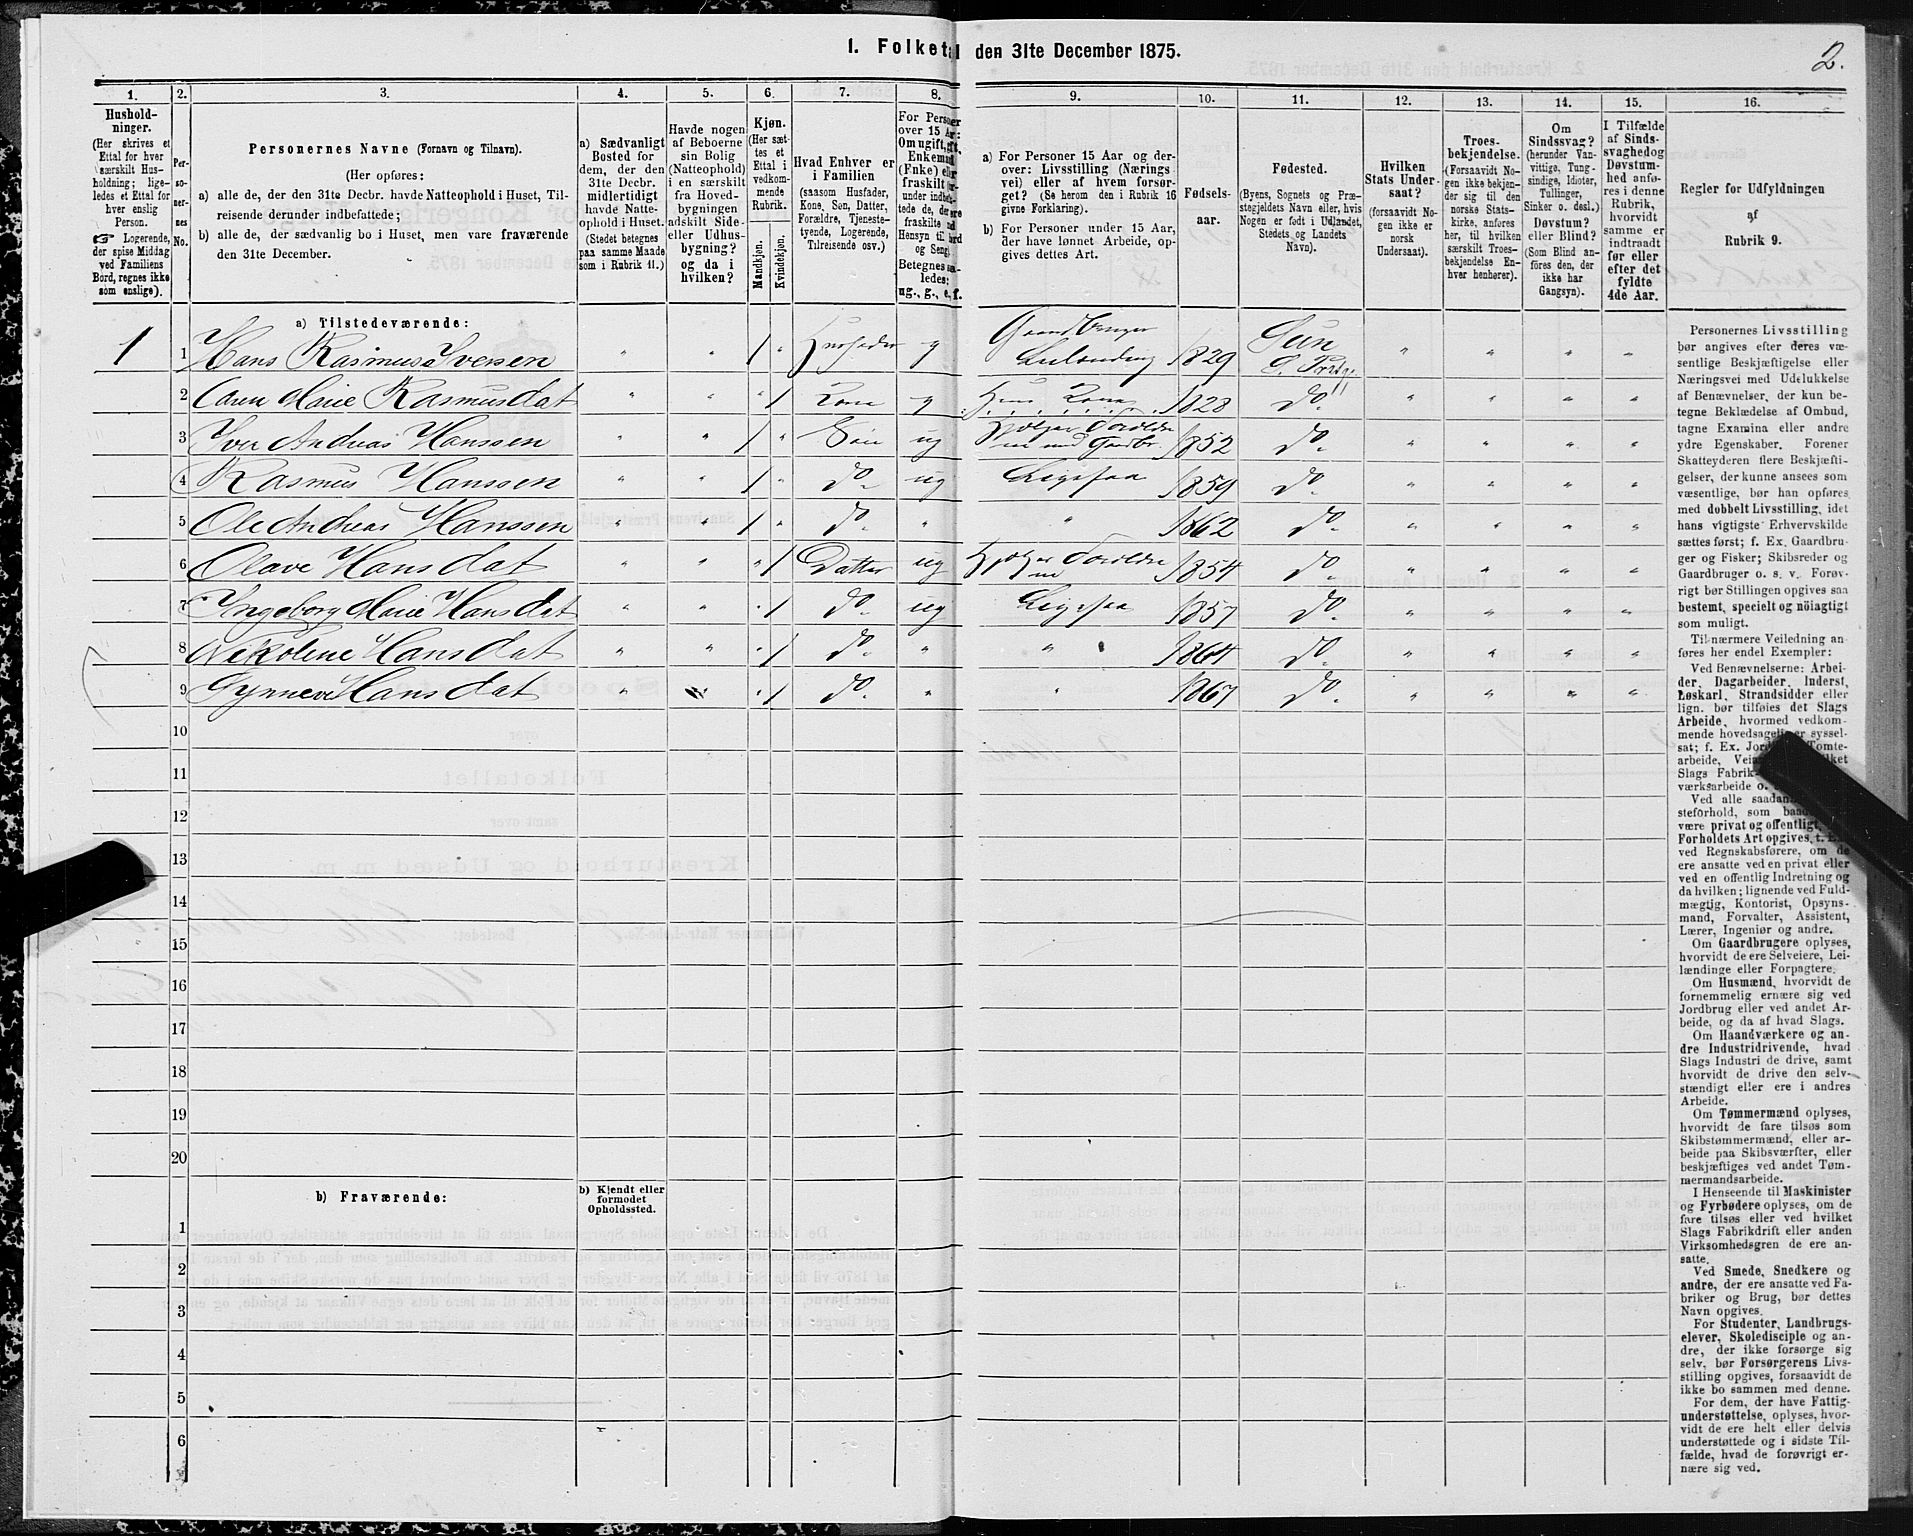 1. Folketal den 31te December 1875.
2.
1. 2. 3. 4. 5. 6. 7. 8. 9. 10. 11. 12. 13. 14. 15. 16.
Hushold-
ninger.
(Her skrives et
Ettal for hver
særskilt Hus-
holdning; lige-
ledes et Ettal for
hver enslig
Person.
☞ Logerende,
der spise Middag
ved Familiens
Bord, regnes ikke
som enslige).
Per-
so-
ner-
nes
No.
Personernes Navne (Fornavn og Tilnavn).
(Her opføres:
a) alle de, der den 31te Decbr. havde Natteophold i Huset, Til-
reisende derunder indbefattede;
b) alle de, der sædvanlig bo i Huset, men vare fraværende
den 31te December.
a) Sædvanligt
Bosted for
dem, der den
31te Decbr.
midlertidigt
havde Natte-
ophold i Huset.
(Stedet betegnes
paa samme Maade
som i Rubrik 11.)
Havde nogen
af Beboerne
sin Bolig
(Natteophold)
i en særskilt
fra Hoved-
bygningen
adskilt Side-
eller Udhus-
bygning?
og da i
hvilken?
Kjøn.
(Her sæt-
tes et
Ettal i
vedkom-
mende
Rubrik.
Mandkjøn.
Kvindekjøn.
Hvad Enhver er
i Familien
(saasom Husfader,
Kone, Søn, Datter,
Forældre, Tjeneste-
tyende, Logerende,
Tilreisende osv.)
For Personer
over 15 Aar:
Om ugift, gift,
Enkemand
(Enke) eller
fraskilt
Betegnes saa-
ledes:
ug., g., e., f.
a) For Personer 15 Aar og der-
over: Livsstilling (Nærings
vei) eller af hvem forsør-
get? (Se herom den i Rubrik 16
givne Forklaring).
b) For Personer under 15 Aar,
der have lønnet Arbeide, op-
gives dettes Art.
Fødsels-
aar.
Fødested.
(Byens, Sognets og Præ-
stegjeldets Navn eller, hvis
Nogen er født i Udlandet,
Stedets og Landets
Navn).
Hvilken
Stats Under-
saat?
(forsaavidt No-
gen ikke er
norsk
Undersaat).
Troes-
bekjendelse.
(Forsaavidt No-
gen ikke bekjen-
der sig til den
norske Stats-
kirke, anføres
her, til hvilken
særskilt Troes-
bekjendelse En-
hver henhører).
Om
Sindssvag?
(herunder Van-
vittige, Tung-
sindige, Idioter,
Tullinger,
Sinker o. desl.)
Døvstum?
eller Blind?
(Som Blind an-
føres den, der
ikke har
Gangsyn).
I Tilfælde
af Sinds-
svaghed og
Døvstum-
hed anfø-
res i denne
Rubrik,
hvorvidt
samme er
indtraadt
før eller
efter det
fyldte
4de Aar.
Regler for Udfyldningen
af
Rubrik 9.
a) Tilstedeværende:
1 1 Hans Rasmus Iversen " " 1 " Husfader g Gaardbruger Leilænding 1829 " " " "
2 Caren Marie Rasmusdat " " " 1 Kone g Hans Kone 1828 Do " " " "
3 Iver Andreas Hanssen " " 1 " Søn ug Hjelper Forældre 1852 Do " " " "
4 Rasmus Hanssen " " 1 " Do ug Ligesaa 1859 Do " " " "
5 Ole Andreas Hanssen " " 1 " Do " " 1862 Do " " " "
6 Olave Hansdat " " " 1 Datter ug Hjelper Forældre 1854 Do " " " "
7 Ingeborg Marie Hansdat " " " 1 Do ug Ligesaa 1857 Do " " " "
8 Nikoline Hansdat " " " 1 Do " " 1864 Do " " " "
9 Synneve Hansdat " " " 1 Do " " 1867 Do " " " "
10
11
12
13
14
15
16
17
18
19
20
b) Fraværende:
b) Kjendt eller
formodet
Opholdssted.
1
2
3
4
5
6
Personernes Livsstilling
bør angives efter deres væ-
sentlige Beskjæftigelse eller
Næringsvei med Udelukkelse
af Benævnelser, der kun be-
tegne Beklædelse af Ombud,
tagne Examina eller andre
ydre Egenskaber. Forener
Skatteyderen flere Beskjæfti-
gelser, der kunne ansees som
væsentlige, bør han opføres
med dobbelt Livsstilling, idet
hans vigtigste Erhvervskilde
sættes først; f. Ex. Gaardbru-
ger og Fisker; Skibsreder og
Gaardbruger o. s. v. Forøv-
rigt bør Stillingen opgives saa
bestemt, specielt og nöiagtigt
som muligt.
Til nærmere Veiledning an-
føres her endel Exempler:
Ved Benævnelserne: Arbei-
der, Dagarbeider, Inderst,
Løskarl, Strandsidder eller
lign. bør tilføies det Slags
Arbeide, hvormed vedkom-
mende hovedsagelig er syssel-
sat; f. Ex. Tomte-
arbeide,
Slags Fabrik-
værksarbeide o.
Ved alle
steforhold, som
være privat og offentligt,
Forholdets Art opgives,
ved Regnskabsførere, om de
ere ansatte ved en privat eller
ved en offentlig Indretning og
da hvilken; lignende ved Fuld-
mægtig, Kontorist, Opsyns-
mand, Forvalter, Assistent,
Lærer, Ingeniør og andre.
Om Gaardbrugere oplyses,
hvorvidt de ere Selveiere, Lei-
lændinge eller Forpagtere.
Om Husmænd, hvorvidt de
fornemmelig ernære sig ved
Jordbrug eller ved andet Ar-
beide, og da af hvad Slags.
Om Haandværkere og an-
dre Industridrivende, hvad
Slags Industri de drive, samt
hvorvidt de drive den selv-
stændigt eller ere i andres
Arbeide.
Om Tømmermænd oplyses,
hvorvidt de fare tilsøs som
Skibstømmermænd, eller ar-
beide paa Skibsværfter, eller
beskjæftiges ved andet Tøm-
mermandsarbeide.
I Henseende til Maskinister
og Fyrbødere oplyses, om de
fare tilsøs eller ved hvilket
Slags Fabrikdrift eller anden
Virksomhedsgren de ere an-
satte.
Ved Smede, Snedkere og
andre, der ere ansatte ved Fa-
briker og Brug, bør dettes
Navn opgives.
For Studenter, Landbrugs-
elever, Skoledisciple og an-
dre, der ikke forsørge sig
selv, bør Forsørgerens Livs-
stilling opgives, forsaavidt de
ikke bo sammen med denne.
For dem, der have Fattig-
understøttelse, oplyses, hvor-
vidt de ere helt eller delvis
understøttede og i sidste Til-
fælde, hvad de forøvrigt er-
nære sig ved.